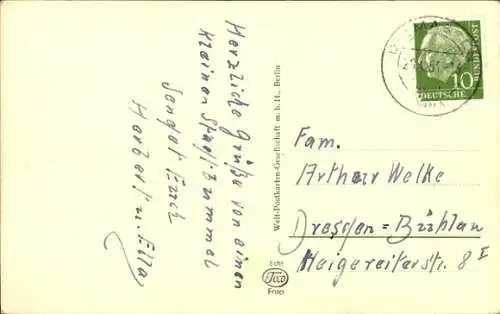 Herzliche Grüße von einem
kleinen Stadtbummel
sendet Euch
Herbert u. Ella
Welt-Postkarten-Gesellschaft m. b. H., Berlin
Echt
Foto
10
DEUTSCHE
BUNDESPOST
Fam.
Arthur Welke
Dresden=Bühlau
Heigereiterstr. 8 I